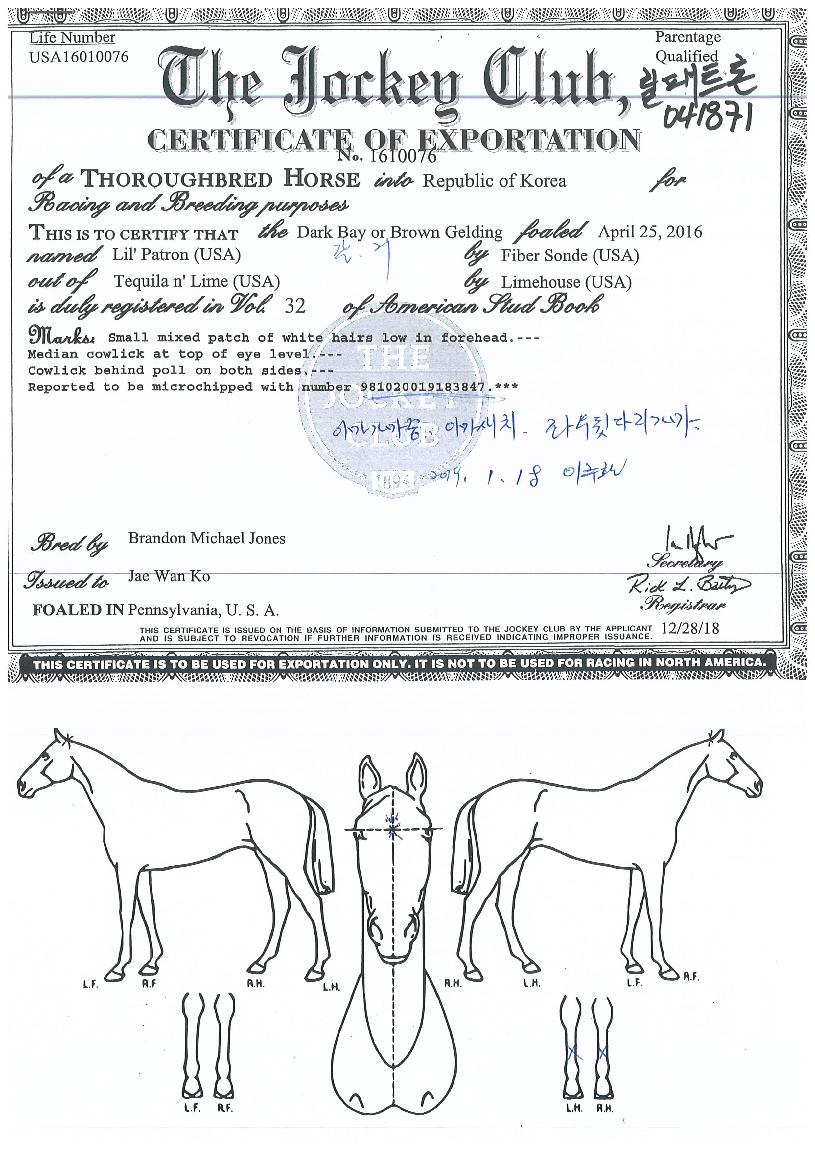 Life Number
USA16010076
Parentage
Qualified
The Jockey Club,
릴패트론
041871
CERTIFICATE OF EXPORTATION
No. 1610076
of a THOROUGHBRED HORSE into Republic of Korea for
Racing and Breeding purposes
THIS IS TO CERTIFY THAT the Dark Bay or Brown Gelding foaled April 25, 2016
named Lil' Patron (USA) by Fiber Sonde (USA)
out of Tequila n' Lime (USA) by Limehouse (USA)
is duly registered in Vol. 32 of American Stud Book
Marks: Small mixed patch of white hairs low in forehead.---
Median cowlick at top of eye level.---
Cowlick behind poll on both sides.---
Reported to be microchipped with number 981020019183847.***
THE
JOCKEY
CLUB
1894
2019. 1. 18
Bred by Brandon Michael Jones
Issued to Jae Wan Ko
Secretary
Rick L. Bailey
Registrar
FOALED IN Pennsylvania, U. S. A.
THIS CERTIFICATE IS ISSUED ON THE BASIS OF INFORMATION SUBMITTED TO THE JOCKEY CLUB BY THE APPLICANT
AND IS SUBJECT TO REVOCATION IF FURTHER INFORMATION IS RECEIVED INDICATING IMPROPER ISSUANCE.
12/28/18
THIS CERTIFICATE IS TO BE USED FOR EXPORTATION ONLY. IT IS NOT TO BE USED FOR RACING IN NORTH AMERICA.
L.F. R.F R.H. L.H. R.H. L.H. L.F. R.F.
L.F. R.F. L.H. R.H.